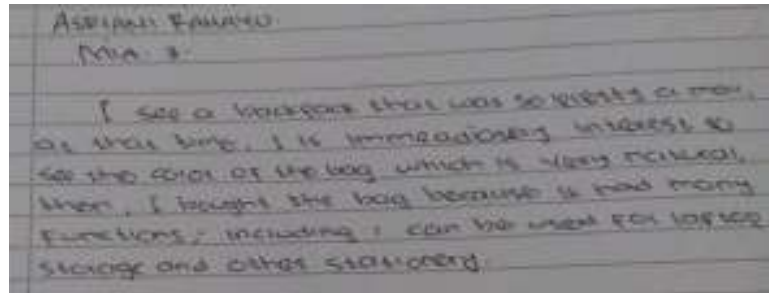 ASRIANI RAHAYU
MIA. 3
I see a backpack that was so a man,
at that time, I is immediately interest to
see the color of the bag which is very natural,
then, I bought the bag because is had many
functions, including : can be used for laptop
storage and other stationery.